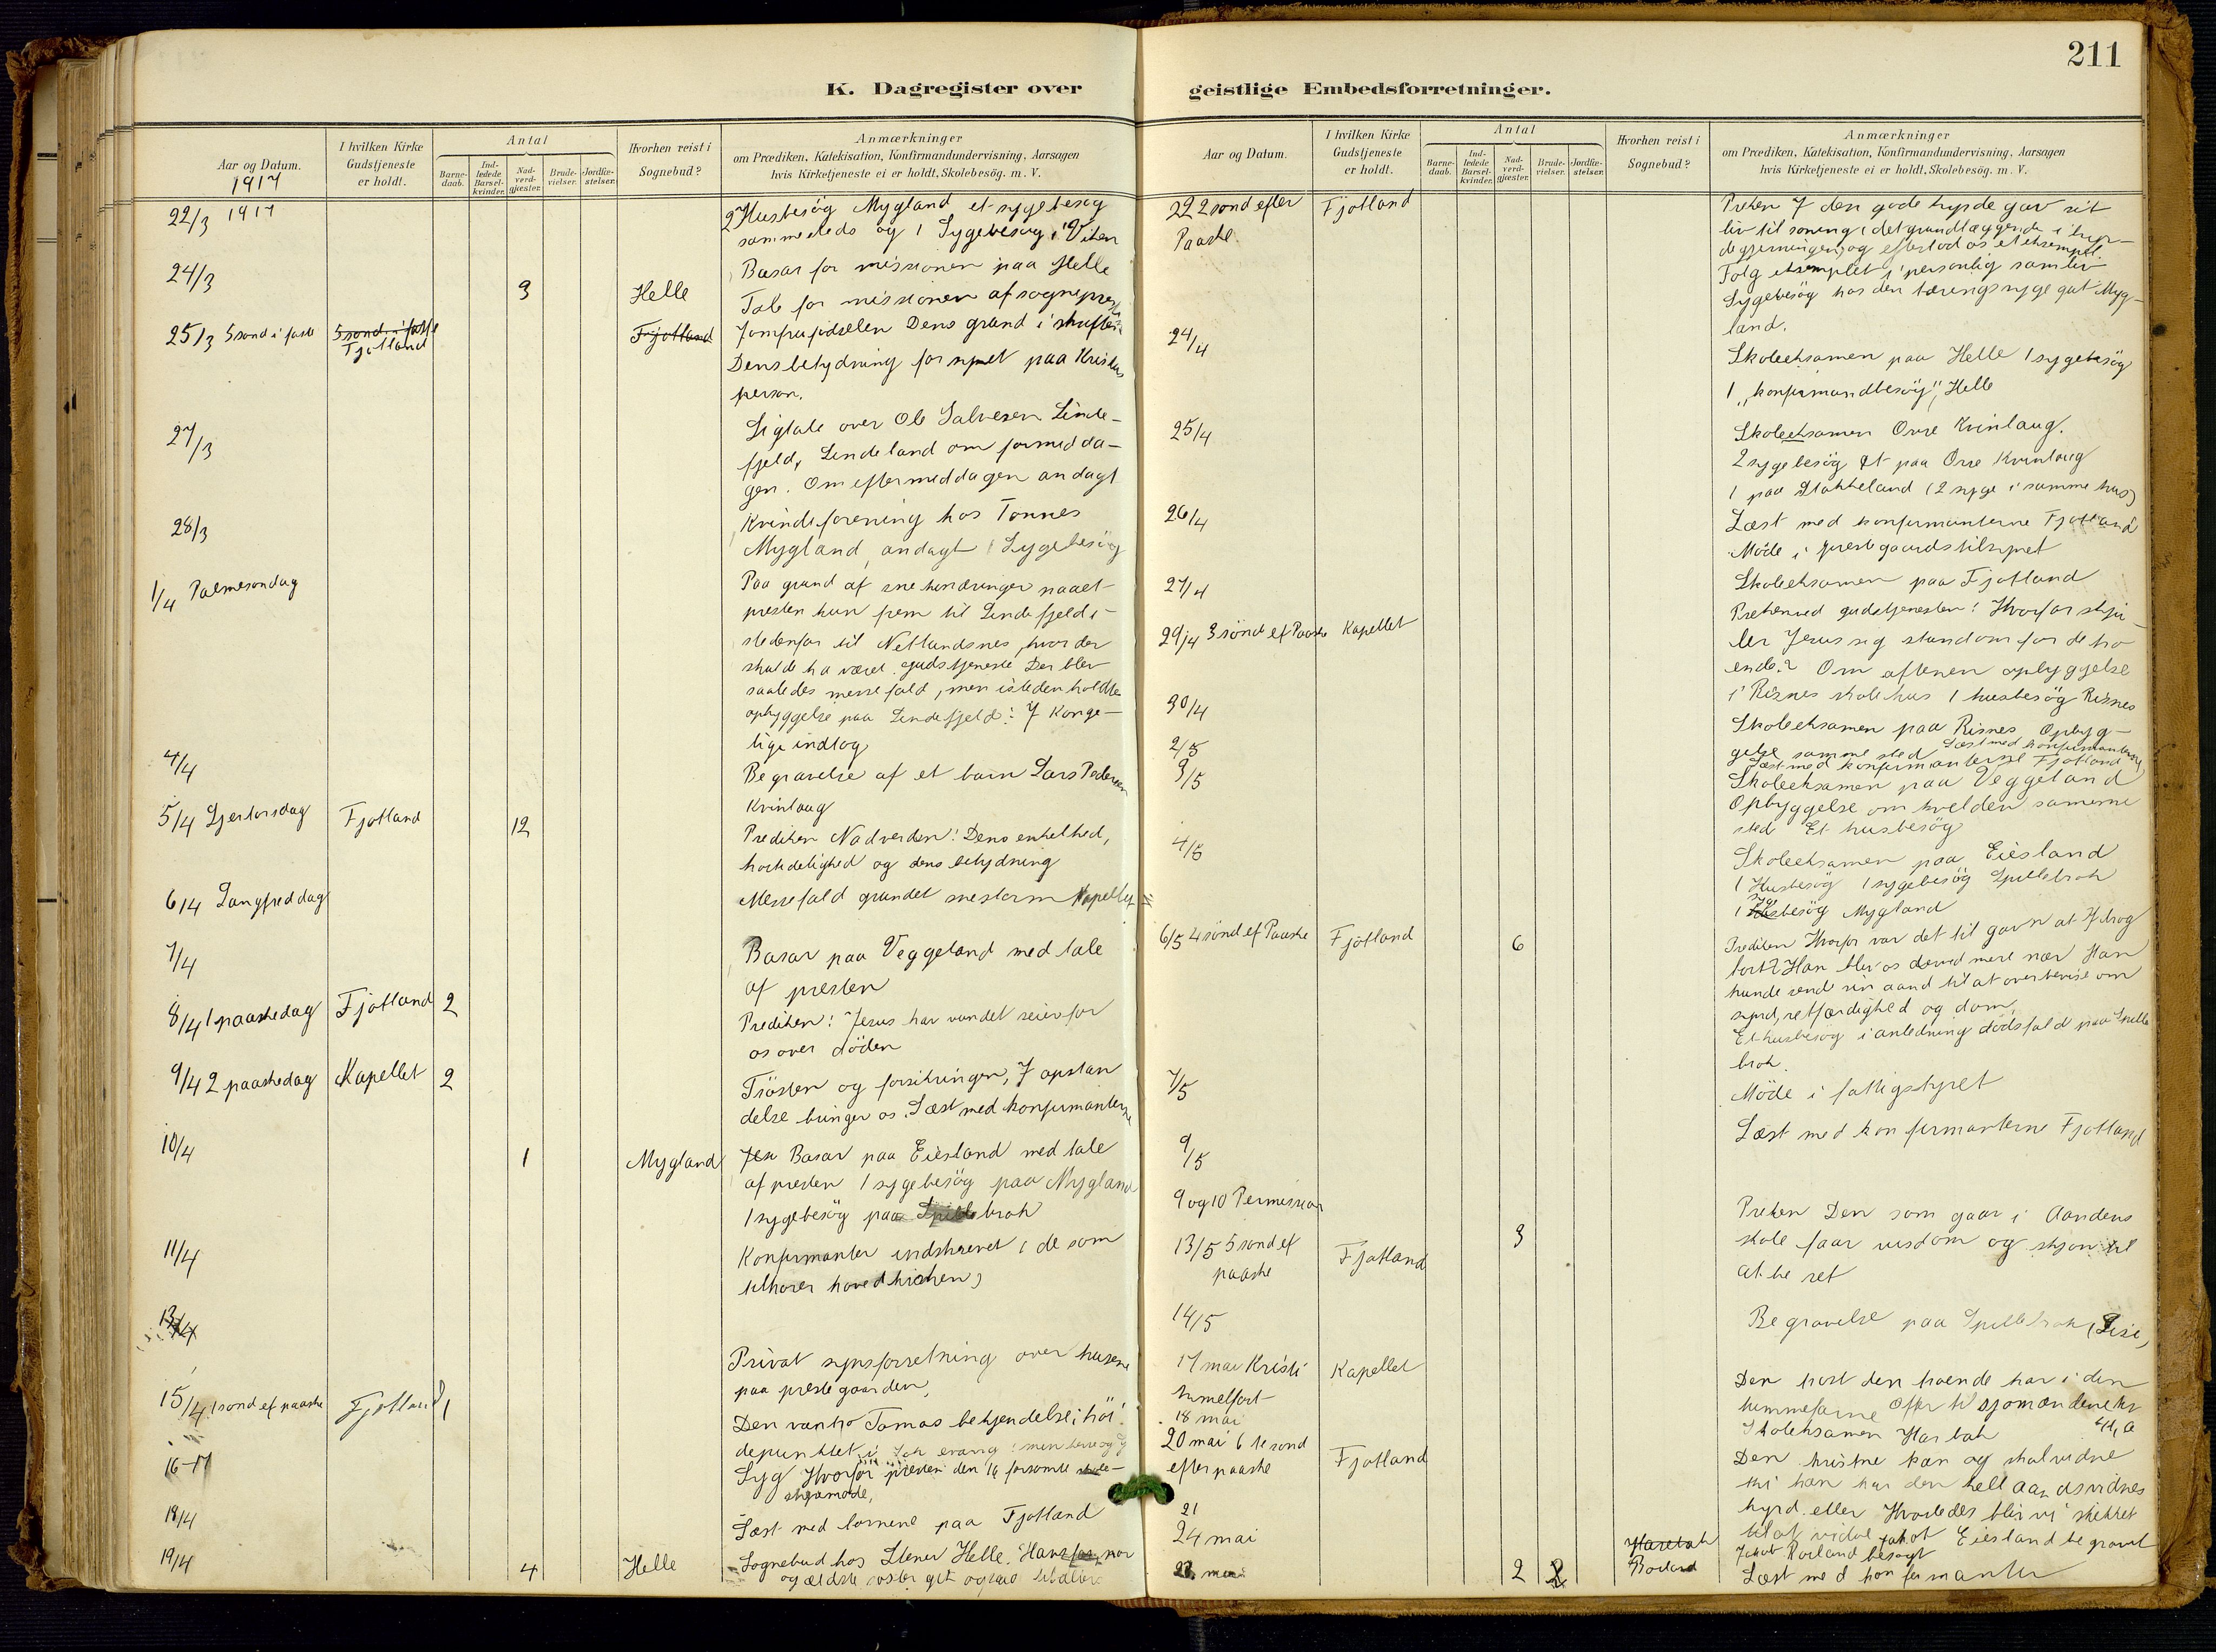 211
K. Dagregister over geistlige Embedsforretninger.
Aar og Datum.
1917
I hvilken Kirke
Gudstjeneste
er holdt.
Antal
Barne-
daab.
Ind-
ledede
Barsel-
kvinder.
Nad-
verd-
gjæster.
Brude-
vielser.
Jordfæ-
stelser.
Hvorhen reist i
Sognebud?
Anmærkninger
om Prædiken, Katekisation, Konfirmandundervisning, Aarsagen
hvis Kirketjeneste ei er holdt, Skolebesøg. m. V.
22/3 1917
2 Husbesøg Mygland et sygebesøg
sammesteds og 1 Sygebesøg i Viken
24/3
3
Helle
Basar for missionen paa Helle
Tale for missionen af sogneprest
25/3 5 sønd i faste
5 sønd i faste
Fjotland
Fjotland
Jomfrufødselen Dens grund i skriften
Dens betydning for synet paa Kristus
person.
27/3
Ligtale over Ole Salvesen Linde-
fjeld, Lindeland om formidda-
gen. Om eftermiddagen andagt
28/3
Kvindeforening hos Tønnes
Mygland, andagt 1 Sygebesøg
1/4 Palmesøndag
Paa grund af sne hindringer naaet
presten kun frem til Lindefjeld i
stedenfor til Netlandsnes, hvor der
skulde ha været gudstjeneste Der blev
saaledes messefald, men isteden holdtes
opbyggelse paa Lindefjeld: J Konge-
lige indtog
4/4
Begravelse af et barn Lars Pedersen
Kvinlaug
5/4 Skjertorsdag
Fjotland
12
Prediken Nadverden: Dens enkelhed,
høitidelighed og dens betydning
6/4 Langfreddag
Messefald grundet snestorm Kapellet
7/4
Basar paa Veggeland med tale
af presten
8/4 1 paaskedag
Fjotland
2
Prediken: Jesus har vundet seier for
os over döden
9/4 2 paaskedag
Kapellet
2
Trösten og forsikringen, J opstan
delse bringer os. Læst med konfirmanterne
10/4
1
Mygland
Basar paa Eiesland med tale
af presten 1 sygebesög paa Mygland
1 sygebesög paa Spillebrok
11/4
Konfirmanter indskrevet (de som
tilhører hovedkirken)
13/4
Privat synsforretning over husene
paa prestegaarden,
15/4 1 sønd ef paaske
Fjotland
1
Den vantro Tomas bekjendelse, höi-
depunktet i Joh evang:
16-17
Syg Hvorfor presten den 16 forsømte skole-
styremøde,
18/4
Læst med børnene paa Fjotland
19/4
4
Helle
Sognebud hos Stener Helle. Hans far, mor
og ældste søster gik ogsaa til alters
Aar og Datum.
I hvilken Kirke
Gudstjeneste
er holdt.
Antal
Barne-
daab.
Ind-
ledede
Barsel-
kvinder.
Nad-
verd-
gjæster.
Brude-
vielser.
Jordfæ-
stelser.
Hvorhen reist i
Sognebud?
Anmærkninger
om Prædiken, Katekisation, Konfirmandundervisning, Aarsagen
hvis Kirketjeneste ei er holdt, Skolebesøg. m. V.
22 2 sønd efter
Paaske.
Fjotland
Preken J den gode hyrde gav sit
liv til soning (det grundlæggende i hyr-
degjerningen) og efterlod os et eksempel
Følg eksemplet i personlig samliv
Sygebesög hos den tæringssyge gut Myg-
land.
24/4
Skoleeksamen paa Helle 1 sygebesög
1 "konfirmandbesög", Helle
25/4
Skoleeksamen Övre Kvinlaug.
2 sygebesög Et paa Övre Kvinlaug
1 paa Stakkeland (2 syge i samme hus)
26/4
Læst med konfirmanterne Fjotland
Møde i prestegaardstilsynet
27/4
Skoleeksamen paa Fjotland
29/4 3 sönd ef Paaske
Kapellet
Preken ved gudstjenesten: Hvorfor skju-
ler Jesus sig stundom for de tro
ende? Om aftenen opbyggelse
i Risnes skolehus 1 husbesög Risnes
30/4
Skoleeksamen paa Risnes Opbyg-
gelse samme sted
2/5
Læst med konfirmanterne Fjotland
3/5
Skoleeksamen paa Veggeland
Opbyggelse om kvelden samme
sted Et husbesög
4/5
Skoleeksamen paa Eiesland
1 Husbesög 1 sygebesög Spillebrok
1 sygebesög Mygland
6/5 4 sönd ef Paaske
Fjotland
6
Prediken Hvorfor var det til gavn at J drog
bort? Han blev os derved mere nær Han
kunde sende sin aand til at overbevise om
synd, retfærdighed og dom,
Et husbesög i anledning dödsfald paa Spille
brok.
7/5
Möde i fattigstyret
9/5
Læst med konfirmanterne Fjotland
9 og 10 Permission
13/5 5 sønd ef
paaske
Fjotland
3
Preken Den som gaar i Aandens
skole faar visdom og skjøn til
at be ret
14/5
Begravelse paa Spillebrok
17 mai Kristi
himmelfart
Kapellet
Den trøst den troende har i den
himmelfarne Offer til sjømændene kr
18 mai
Skoleeksamen
20 mai 6 te sønd
efter paaske
Fjotland
Den kristne kan og skal vidne
thi han har den hell aands vidnes
byrd eller Hvorledes blir vi skikket
til at vidne
21
24 mai
Jakob Eiesland begravet
Roiland
2
Jakob Roiland besøgt
Læst med konfirmanter